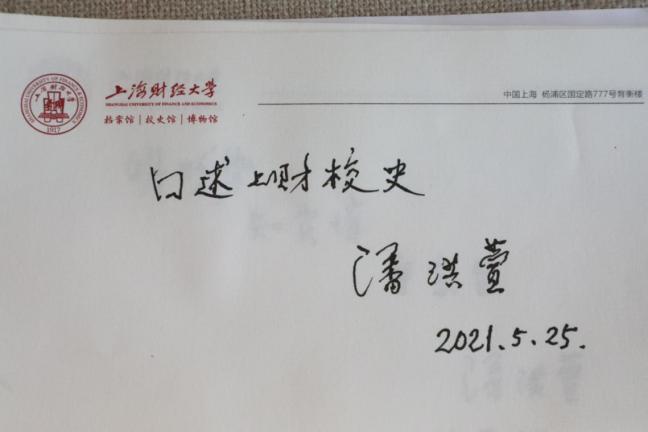 上海财经大学
SHANGHAI UNIVERSITY OF FINANCE AND ECONOMICS
档案馆 | 校史馆 | 博物馆
中国上海 杨浦区国定路777号育衡楼
口述上财校史
潘洪萱
2021.5.25.
1917